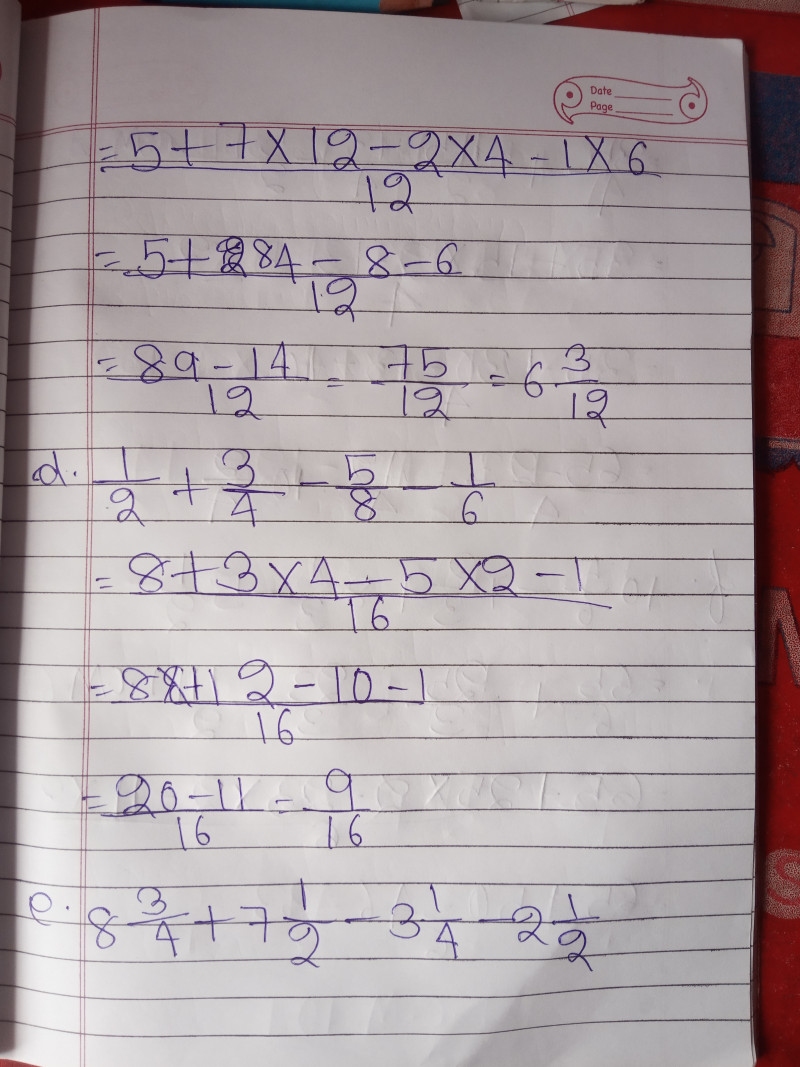 Date
Page
= 5 + 7 × 12 - 2 × 4 - 1 × 6 / 12
= 5 + 84 - 8 - 6 / 12
= 89 - 14 / 12 = 75 / 12 = 6 3/12
d. 1/2 + 3/4 - 5/8 - 1/6
= 8 + 3 × 4 - 5 × 2 - 1 / 16
= 8 + 12 - 10 - 1 / 16
= 20 - 11 / 16 = 9 / 16
e. 8 3/4 + 7 1/2 - 3 1/4 - 2 1/2